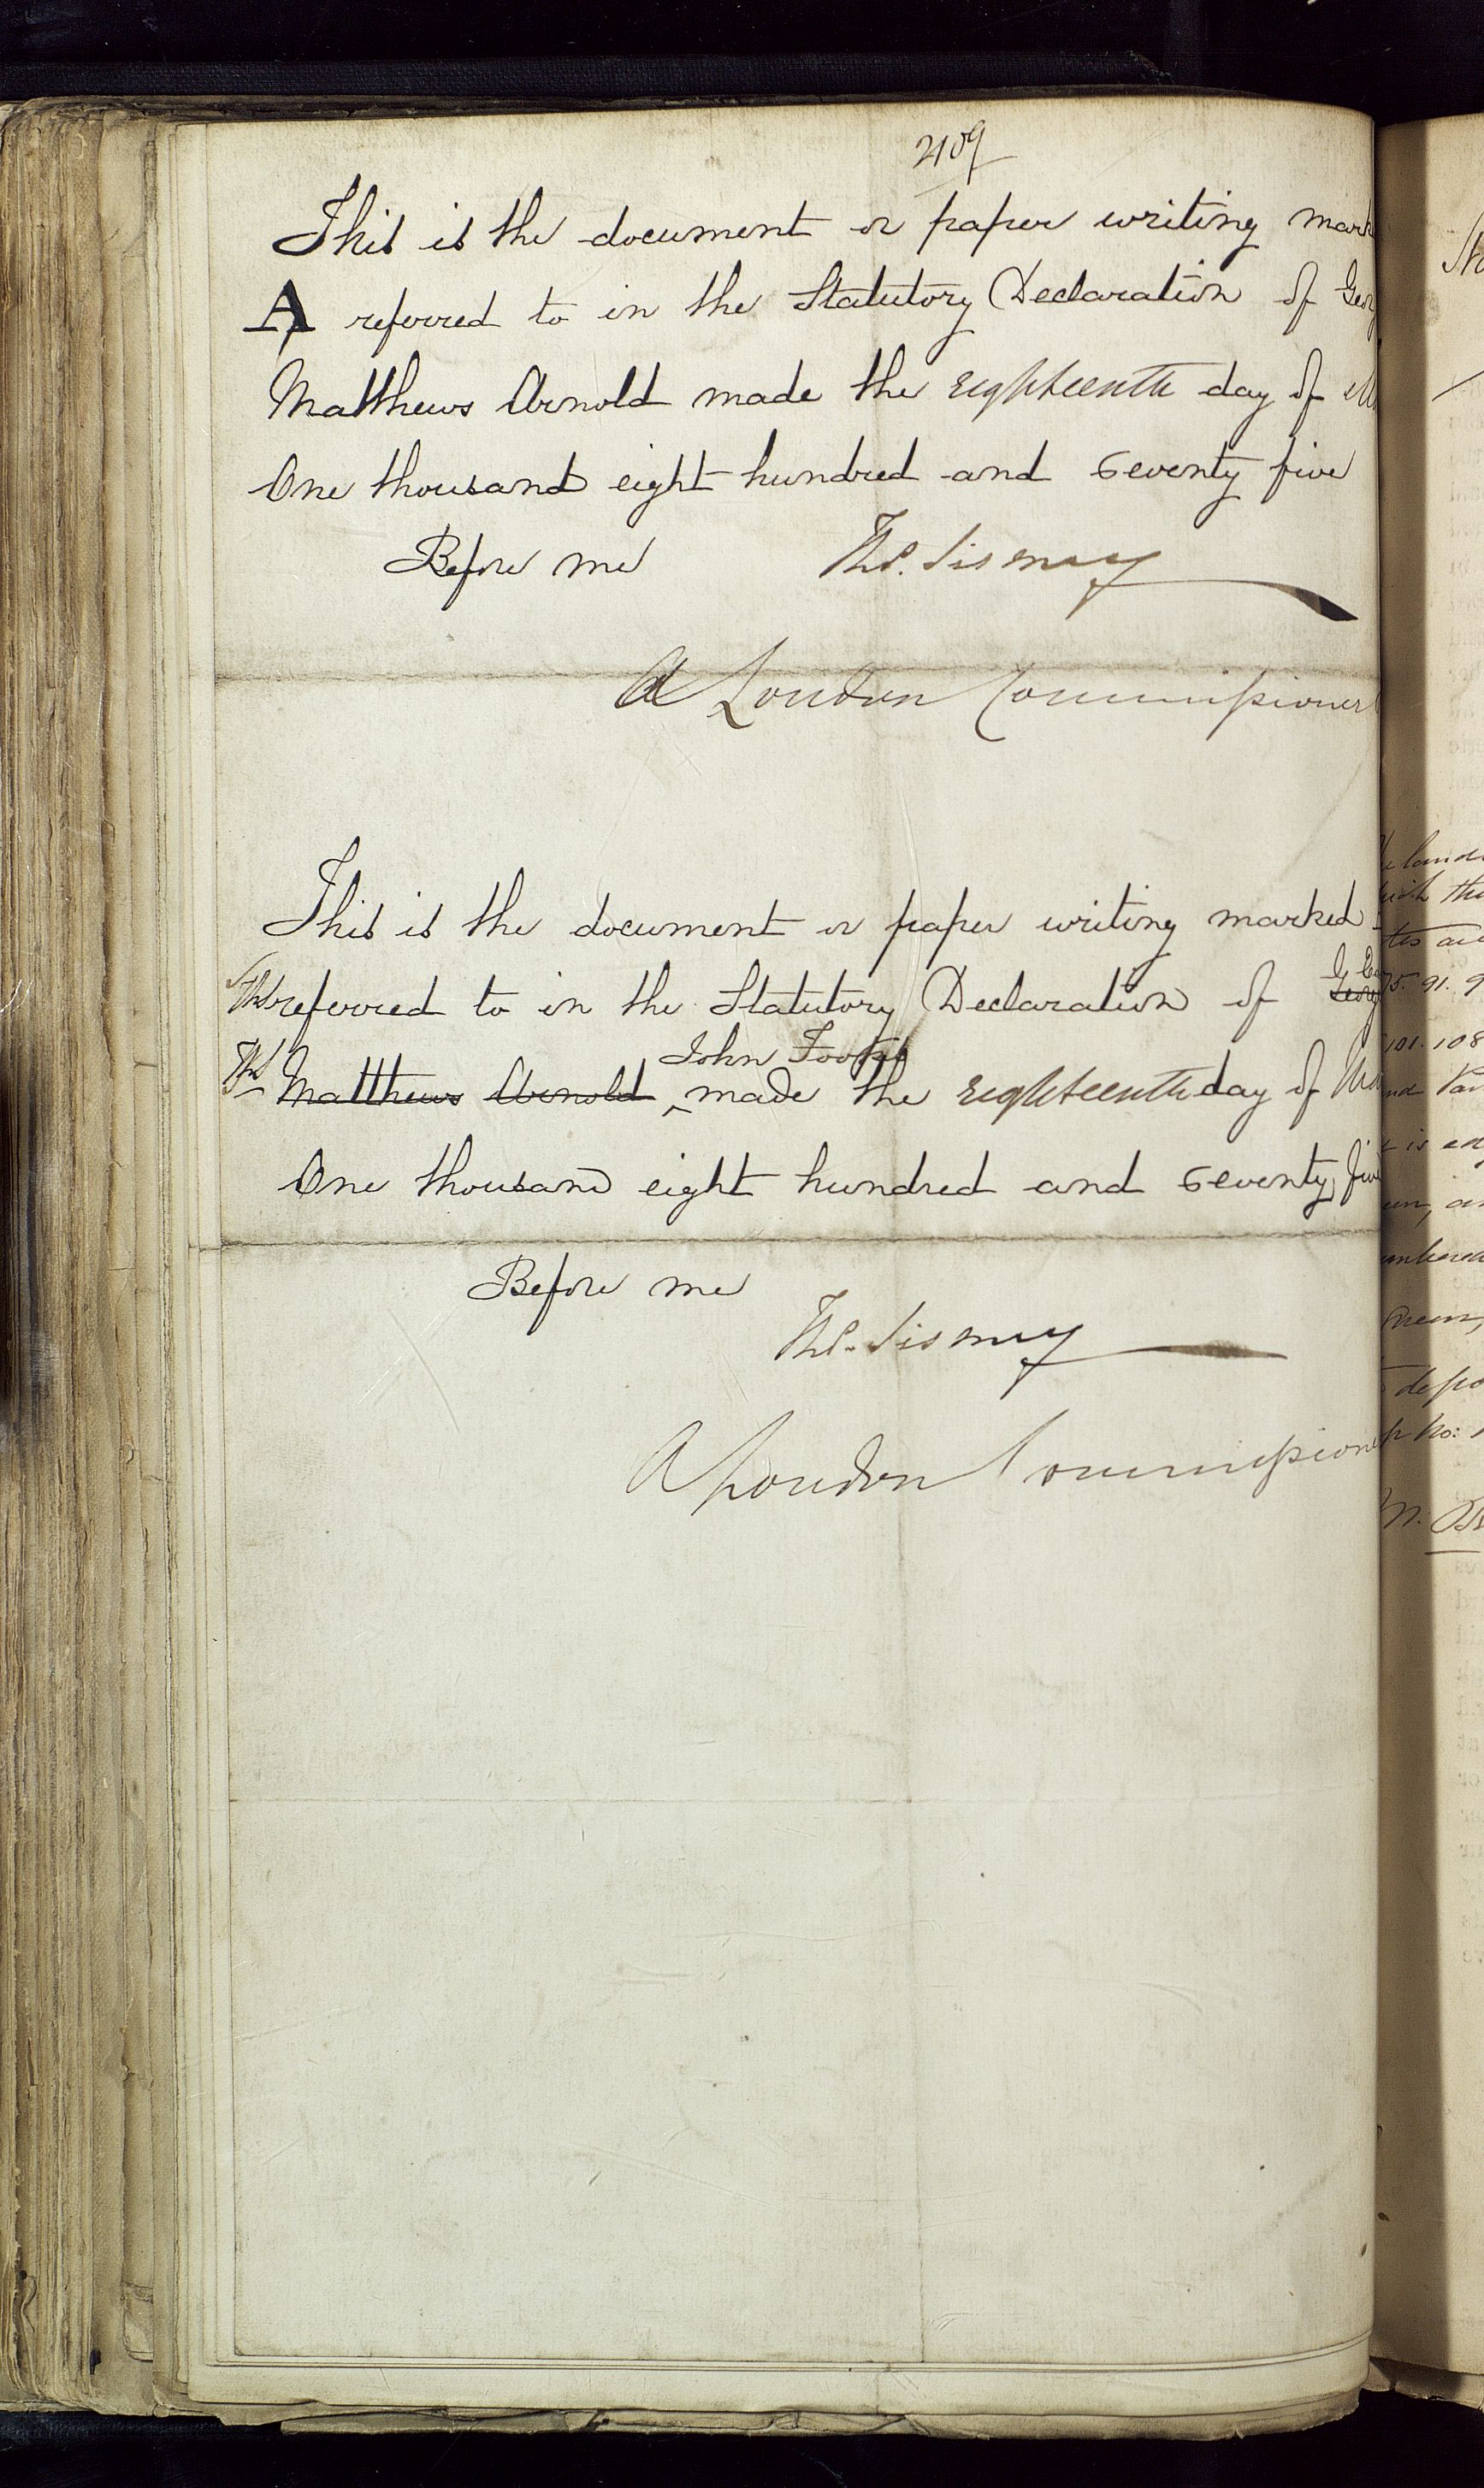 2109
This is the document or paper writing mark
A referred to in the Statutory Declaration of Geor
Matthews Arnold made the eighteenth day of
One thousand eight hundred and seventy five
Before me
A London Commissioner
This is the document or paper writing marked
referred to in the Statutory Declaration of
John
Matthews Arnold made the eighteenth day of
One thousand eight hundred and seventy five
Before me
A London Commission